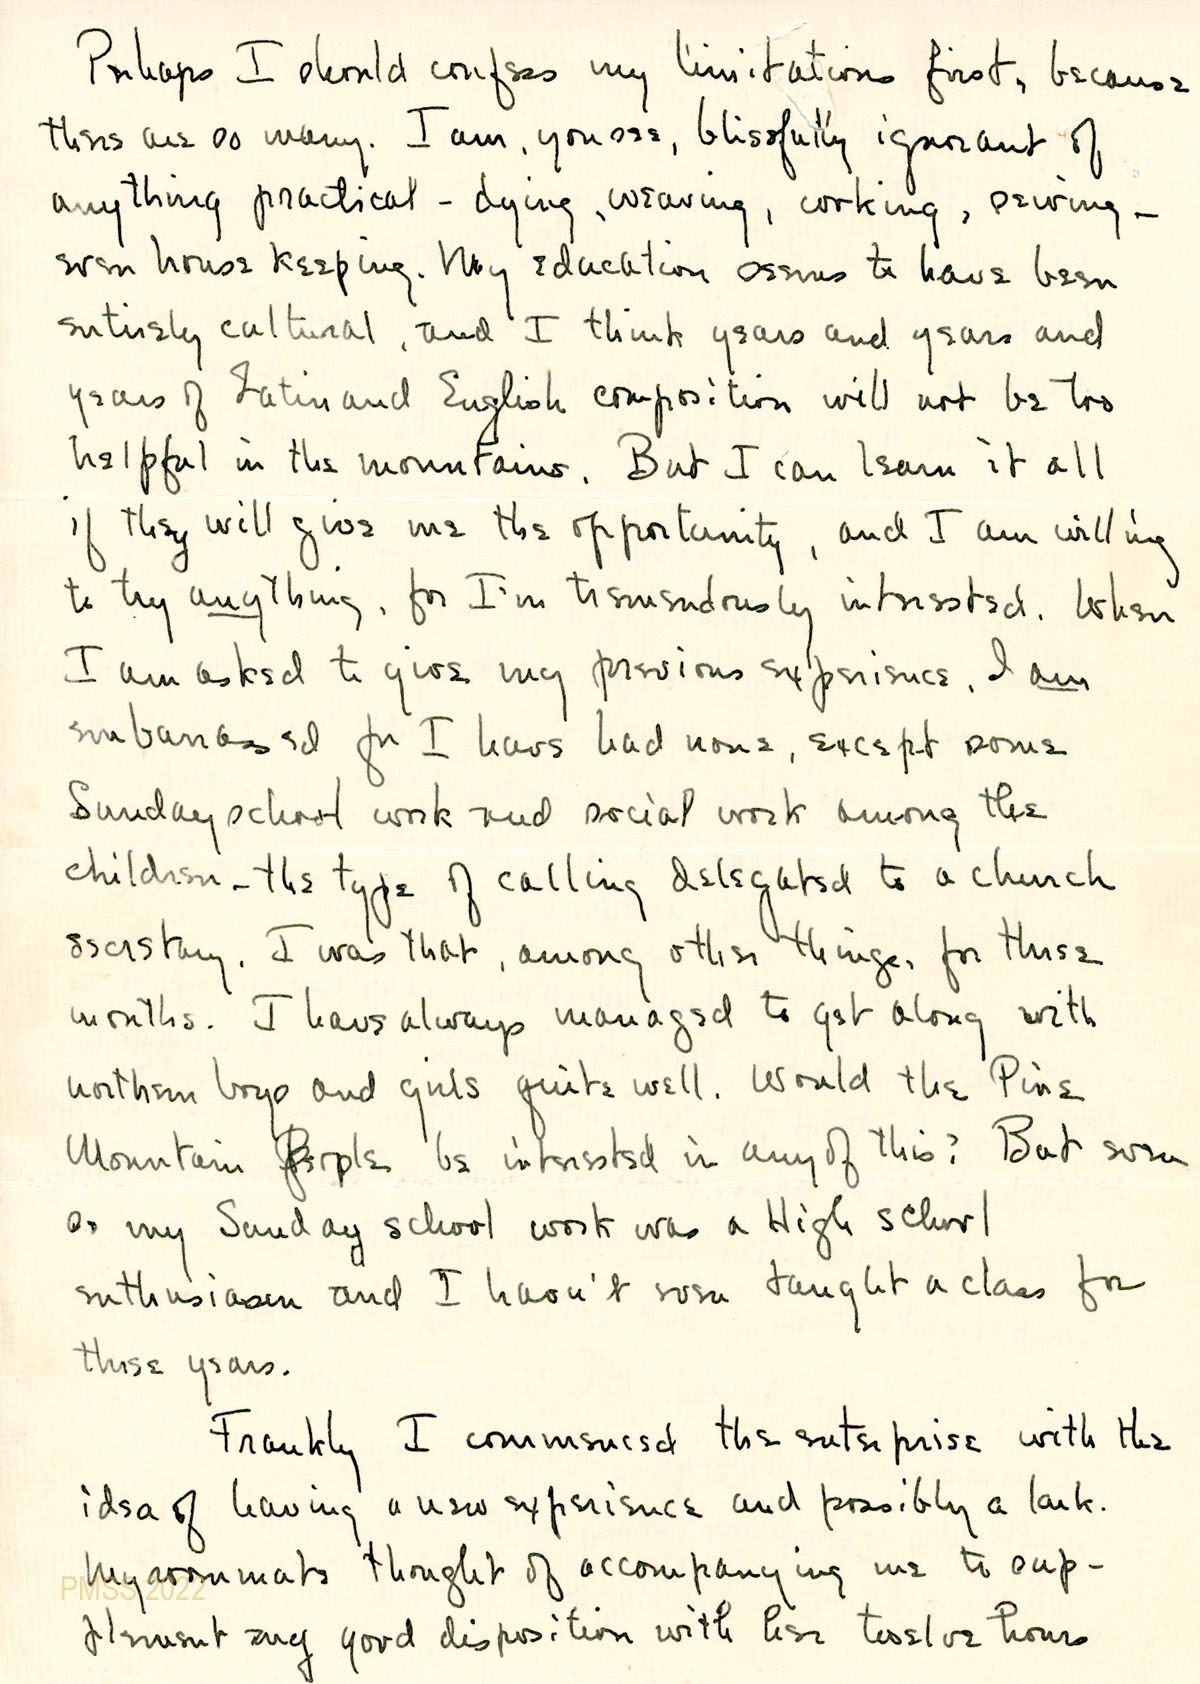 Perhaps I should confess my limitations first, because
there are so many. I am, you see, blissfully ignorant of
anything practical - dying, weaving, cooking, sewing -
even house keeping. My education seems to have been
entirely cultural, and I think years and years and
years of Latin and English composition will not be too
helpful in the mountains. But I can learn it all
if they will give me the opportunity, and I am willing
to try anything, for I'm tremendously interested. When
I am asked to give my previous experience, I am
embarrassed for I have had none, except some
Sunday school work and social work among the
children - the type of calling delegated to a church
secretary. I was that, among other things, for three
months. I have always managed to get along with
northern boys and girls quite well. Would the Pine
Mountain People be interested in any of this? But even
so my Sunday school work was a High school
enthusiasm and I haven't even taught a class for
three years.
Frankly I commenced the enterprise with the
idea of having a new experience and possibly a lark.
My roommate thought of accompanying me to sup-
plement my good disposition with her twelve hours
PMSS 2022